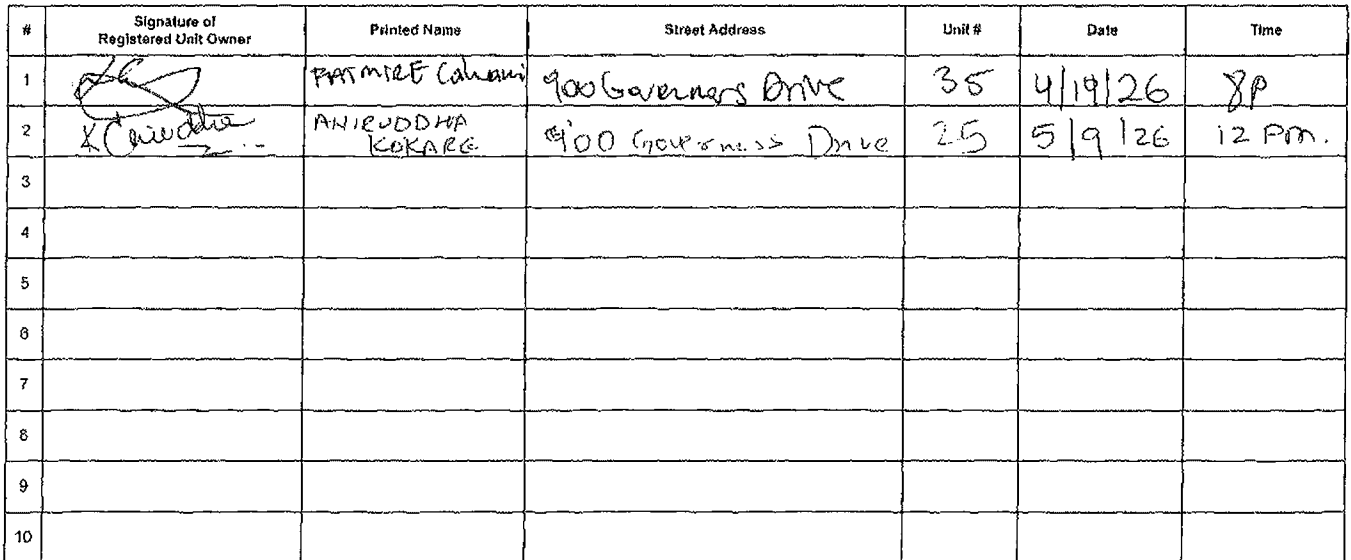 # Signature of Registered Unit Owner Printed Name Street Address Unit # Date Time
1 FATMIRE 900 Governers Drive 35 4/19/26 8P
2 ANIRUDDHA KOKARE 900 Governess Drive 25 5/9/26 12 Pm.
3
4
5
6
7
8
9
10